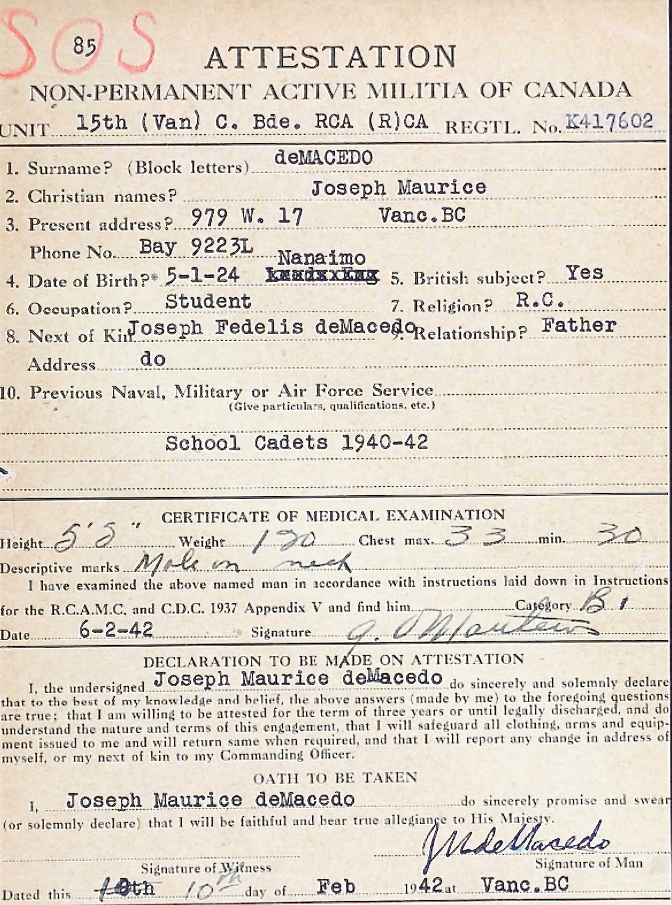 SOS 85
ATTESTATION
NON-PERMANENT ACTIVE MILITIA OF CANADA
UNIT 15th (Van) C. Bde. RCA (R)CA REGTL. No. K417602
1. Surname? (Block letters) deMACEDO
2. Christian names? Joseph Maurice
3. Present address? 979 W. 17 Vanc.BC
Phone No. Bay 9223L Nanaimo
4. Date of Birth?* 5-1-24 5. British subject? Yes
6. Occupation? Student 7. Religion? R.C.
8. Next of Kin Joseph Fedelis deMacedo 9. Relationship? Father
Address do
10. Previous Naval, Military or Air Force Service
(Give particulars, qualifications, etc.)
School Cadets 1940-42
CERTIFICATE OF MEDICAL EXAMINATION
Height 5'5" Weight Chest max. 33 min. 30
Descriptive marks Mole on neck
I have examined the above named man in accordance with instructions laid down in Instructions
for the R.C.A.M.C. and C.D.C. 1937 Appendix V and find him Category B1
Date 6-2-42 Signature
DECLARATION TO BE MADE ON ATTESTATION
I, the undersigned Joseph Maurice deMacedo do sincerely and solemnly declare
that to the best of my knowledge and belief, the above answers (made by me) to the foregoing questions
are true; that I am willing to be attested for the term of three years or until legally discharged, and do
understand the nature and terms of this engagement, that I will safeguard all clothing, arms and equip-
ment issued to me and will return same when required, and that I will report any change in address of
myself, or my next of kin to my Commanding Officer.
OATH TO BE TAKEN
I, Joseph Maurice deMacedo do sincerely promise and swear
(or solemnly declare) that I will be faithful and bear true allegiance to His Majesty.
JMdeMacedo
Signature of Witness Signature of Man
Dated this 10th day of Feb 1942 at Vanc.BC